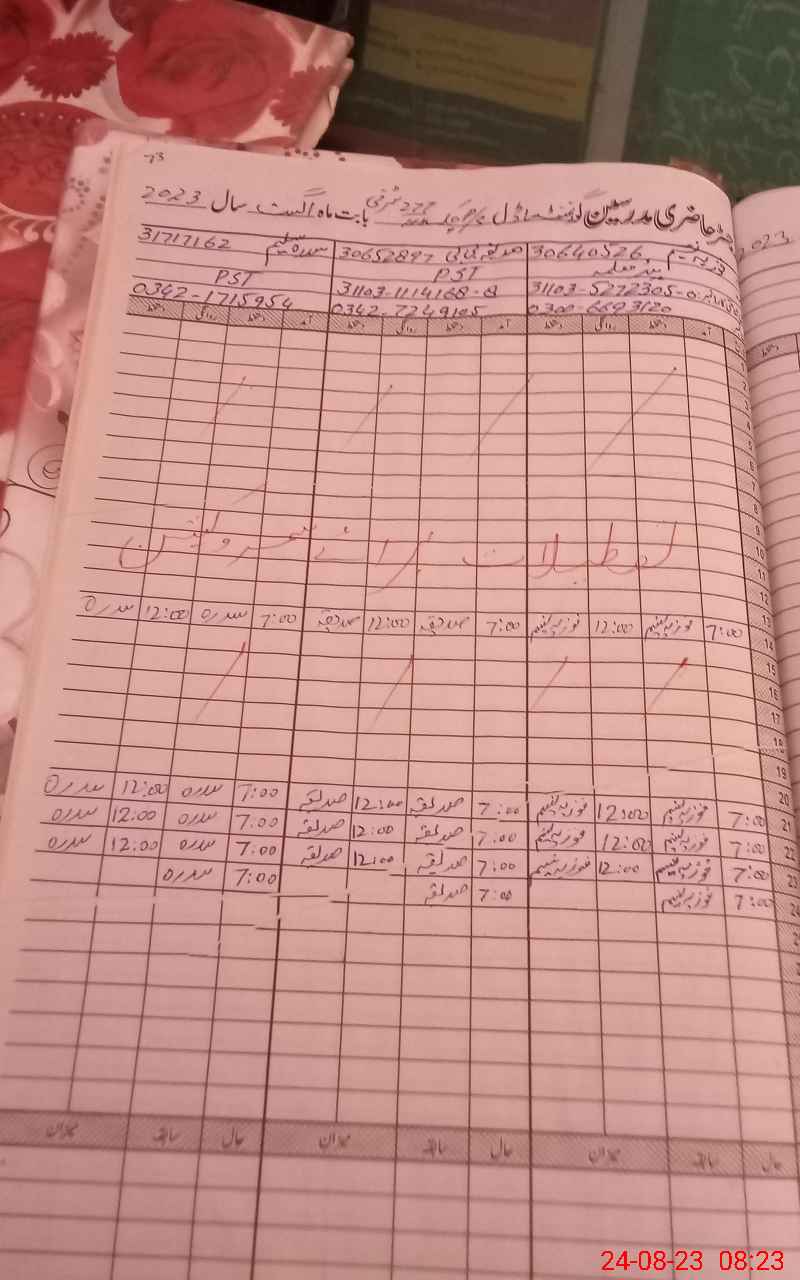 73
رجسٹر حاضری مدرسین گورنمنٹ ماڈل 277 بابت ماہ اگست سال 2023
فوزیہ نسیم 30640526 صدیقہ بی بی 30652897 سدرہ سلیم 31717162
ہیڈ معلمہ PST PST
31103-5272305-0 31103-1114168-8 0342-1715954
0300-6693120 0342-7249105
آمد دستخط روانگی دستخط آمد دستخط روانگی دستخط آمد دستخط روانگی دستخط
2
3
4
5
6
7
8
9
تعطیلات برائے
10
11
12
13
14 7:00 فوزیہ نسیم 12:00 فوزیہ نسیم 7:00 صدیقہ 12:00 صدیقہ 7:00 سدرہ 12:00 سدرہ
15
16
17
18
19
20
21 7:00 فوزیہ نسیم 12:00 فوزیہ نسیم 7:00 صدیقہ 12:00 صدیقہ 7:00 سدرہ 12:00 سدرہ
22 7:00 فوزیہ نسیم 12:00 فوزیہ نسیم 7:00 صدیقہ 12:00 صدیقہ 7:00 سدرہ 12:00 سدرہ
23 7:00 فوزیہ نسیم 12:00 فوزیہ نسیم 7:00 صدیقہ 12:00 صدیقہ 7:00 سدرہ 12:00 سدرہ
24 7:00 فوزیہ نسیم 7:00 صدیقہ 7:00 سدرہ
حال سابقہ میزان حال سابقہ میزان حال سابقہ میزان
2023
24-08-23 08:23